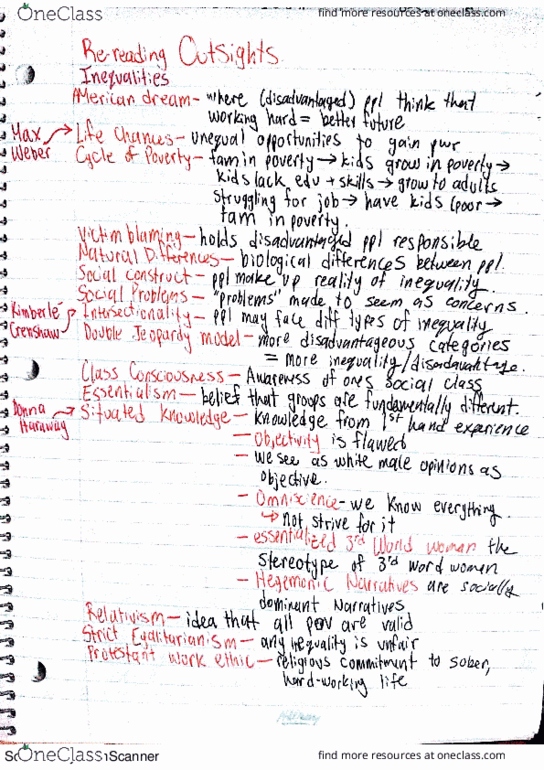 OneClass
find more resources at oneclass.com
Re-reading Outsights
Inequalities
American dream- where (disadvantaged) ppl think that
working hard = better future
Max
Weber
Life Chances- unequal opportunities to gain pwr
Cycle of Poverty- fam in poverty → kids grow in poverty →
kids lack edu + skills → grow to adults
struggling for job → have kids (poor →
fam in poverty.
Victim blaming- holds disadvantaged ppl responsible
Natural Differences- biological differences between ppl.
Social construct- ppl make up reality of inequality.
Social Problems- "problems" made to seem as concerns.
Kimberlé
Crenshaw
Intersectionality- ppl may face diff types of inequality
Double Jeopardy model- more disadvantageous categories
= more inequality/disadvantage.
Class Consciousness- Awareness of ones social class
Essentialism- belief that groups are fundamentally different.
Donna
Haraway
Situated Knowledge- knowledge from 1st hand experience
- Objectivity is flawed
- we see as white male opinions as
objective.
- Omniscience- we know everything.
↳ not strive for it
- essentialized 3rd World woman the
stereotype of 3rd word woman
- Hegemonic Narratives are socially
dominant Narratives
Relativism- idea that all pov are valid
Strict Egalitarianism- any inequality is unfair
Protestant work ethic- religious commitment to sober,
hard-working life
OneClass
Scanner
find more resources at oneclass.com